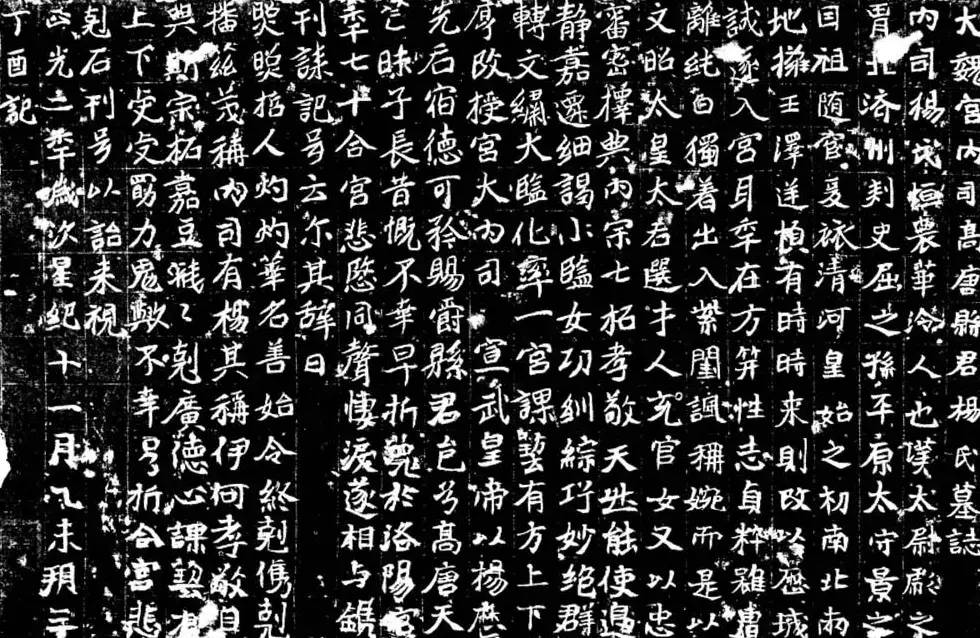 大魏宮內司高唐縣君楊氏墓誌
內司楊氏恒農華泠人也漢太尉彪之
胄北濟州刾史屈之孫平原太守景之
囙祖随宦夏旅清河皇始之初南北兩
地擁王澤逆愼有時時来則改以歷城
誠遂入宮耳年在方笄性志貞粹雖遭
離純白獨着出入紫闈諷稱婉而是以
文昭太皇太右選才人充官女又以忠
審密擇典內宗七柘孝敬天然能使邉
静嘉遷細謁小臨女功紃綜巧妙絶群
轉文繡大臨化率一宮課䂮有方上下
厚改授宮大內司宣武皇帝以楊歷
先后宿德可矜賜爵縣君邑兮高唐天
乏昧子長昔慨不幸早折䒨於洛陽宮
年七十合宮悲慜同聲悽淚遂相与鐫
刊誄記号云尒其辞曰
煚煚掊人灼灼華名善始令終剋儁剋
播兹茂稱內司有楊其稱伊何孝敬自
與斯宗拓嘉豆濈濈剋廣徳心課䂮有
上下受受勠力鬼歟不幸号折合宮悲
剋石刊号以詒来視
正光二年歲次星紀十一月乙未朔三
丁酉記